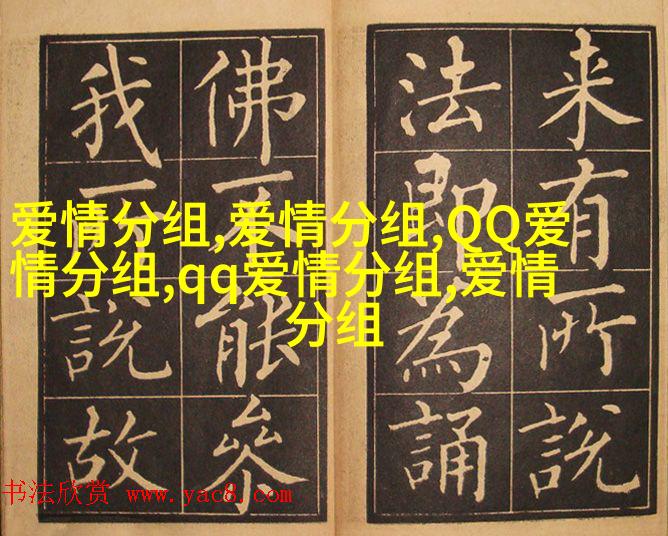 来有所說
法即為誦
佛不能叅
我說故
爱情分组,爱情分组,QQ爱
情分组,qq爱情分组,爱情
分组
书法欣赏 www.yac8.com